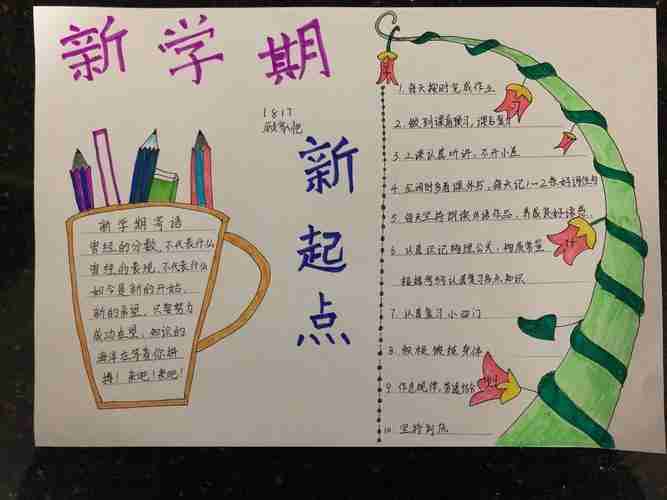 新学期
1817
新起点
新学期寄语
曾经的分数,不代表什么
曾经的表现,不代表什么
如今是新的开始,
新的希望,只要努力
成功在望,知识的
海洋在等着你拼
搏!来吧!来吧!
1.每天按时完成作业
2.做到课前预习,课后复习
3.上课认真听讲,不开小差
4.空闲时多看课外书,每天记1~2条好词佳句
5.每天坚持朗读
6.认真识记物理公式,
认真复习 知识
7.认真复习小四门
8.积极锻炼身体
9.作息规律,劳逸结合
10.坚持到底